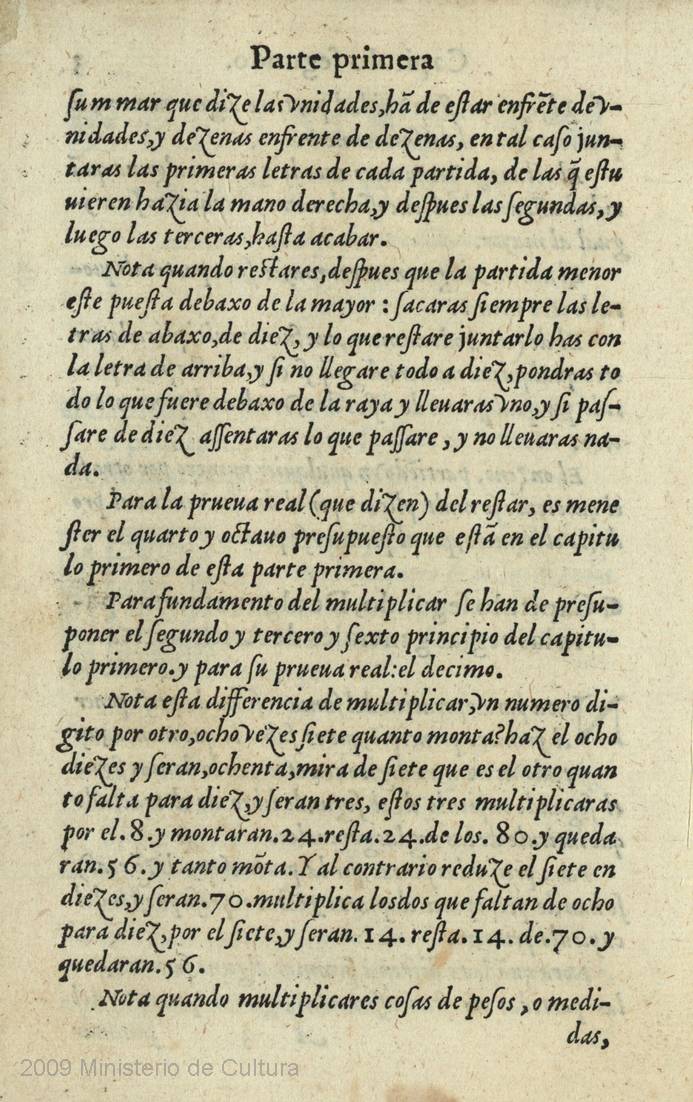 Parte primera
ſummar que dize las vnidades, hã de eſtar enfrẽte de v-
nidades, y dezenas enfrente de dezenas, en tal caſo jun-
taras las primeras letras de cada partida, de las q̃ eſtu
uieren hazia la mano derecha, y deſpues las ſegundas, y
luego las terceras, haſta acabar.
Nota quando reſtares, deſpues que la partida menor
eſte pueſta debaxo de la mayor : ſacaras ſiempre las le-
tras de abaxo, de diez, y lo que reſtare juntarlo has con
la letra de arriba, y ſi no llegare todo a diez, pondras to
do lo que fuere debaxo de la raya y lleuaras vno, y ſi paſ-
ſare de diez aſſentaras lo que paſſare, y no lleuaras na-
da.
Para la prueua real (que dizen) del reſtar, es mene
ſter el quarto y octauo preſupueſto que eſtã en el capitu
lo primero de eſta parte primera.
Para fundamento del multiplicar ſe han de preſu-
poner el ſegundo y tercero y ſexto principio del capitu-
lo primero. y para ſu prueua real: el decimo.
Nota eſta differencia de multiplicar, vn numero di-
gito por otro, ocho vezes ſiete quanto monta? haz el ocho
diezes y ſeran, ochenta, mira de ſiete que es el otro quan
to falta para diez, y ſeran tres, eſtos tres multiplicaras
por el. 8. y montaran. 24. reſta. 24. de los. 80. y queda
ran. 56. y tanto mõta. Y al contrario reduze el ſiete en
diezes, y ſeran. 70. multiplica los dos que faltan de ocho
para diez, por el ſiete, y ſeran. 14. reſta. 14. de. 70. y
quedaran. 56.
Nota quando multiplicares coſas de peſos, o medi-
das,
2009 Ministerio de Cultura